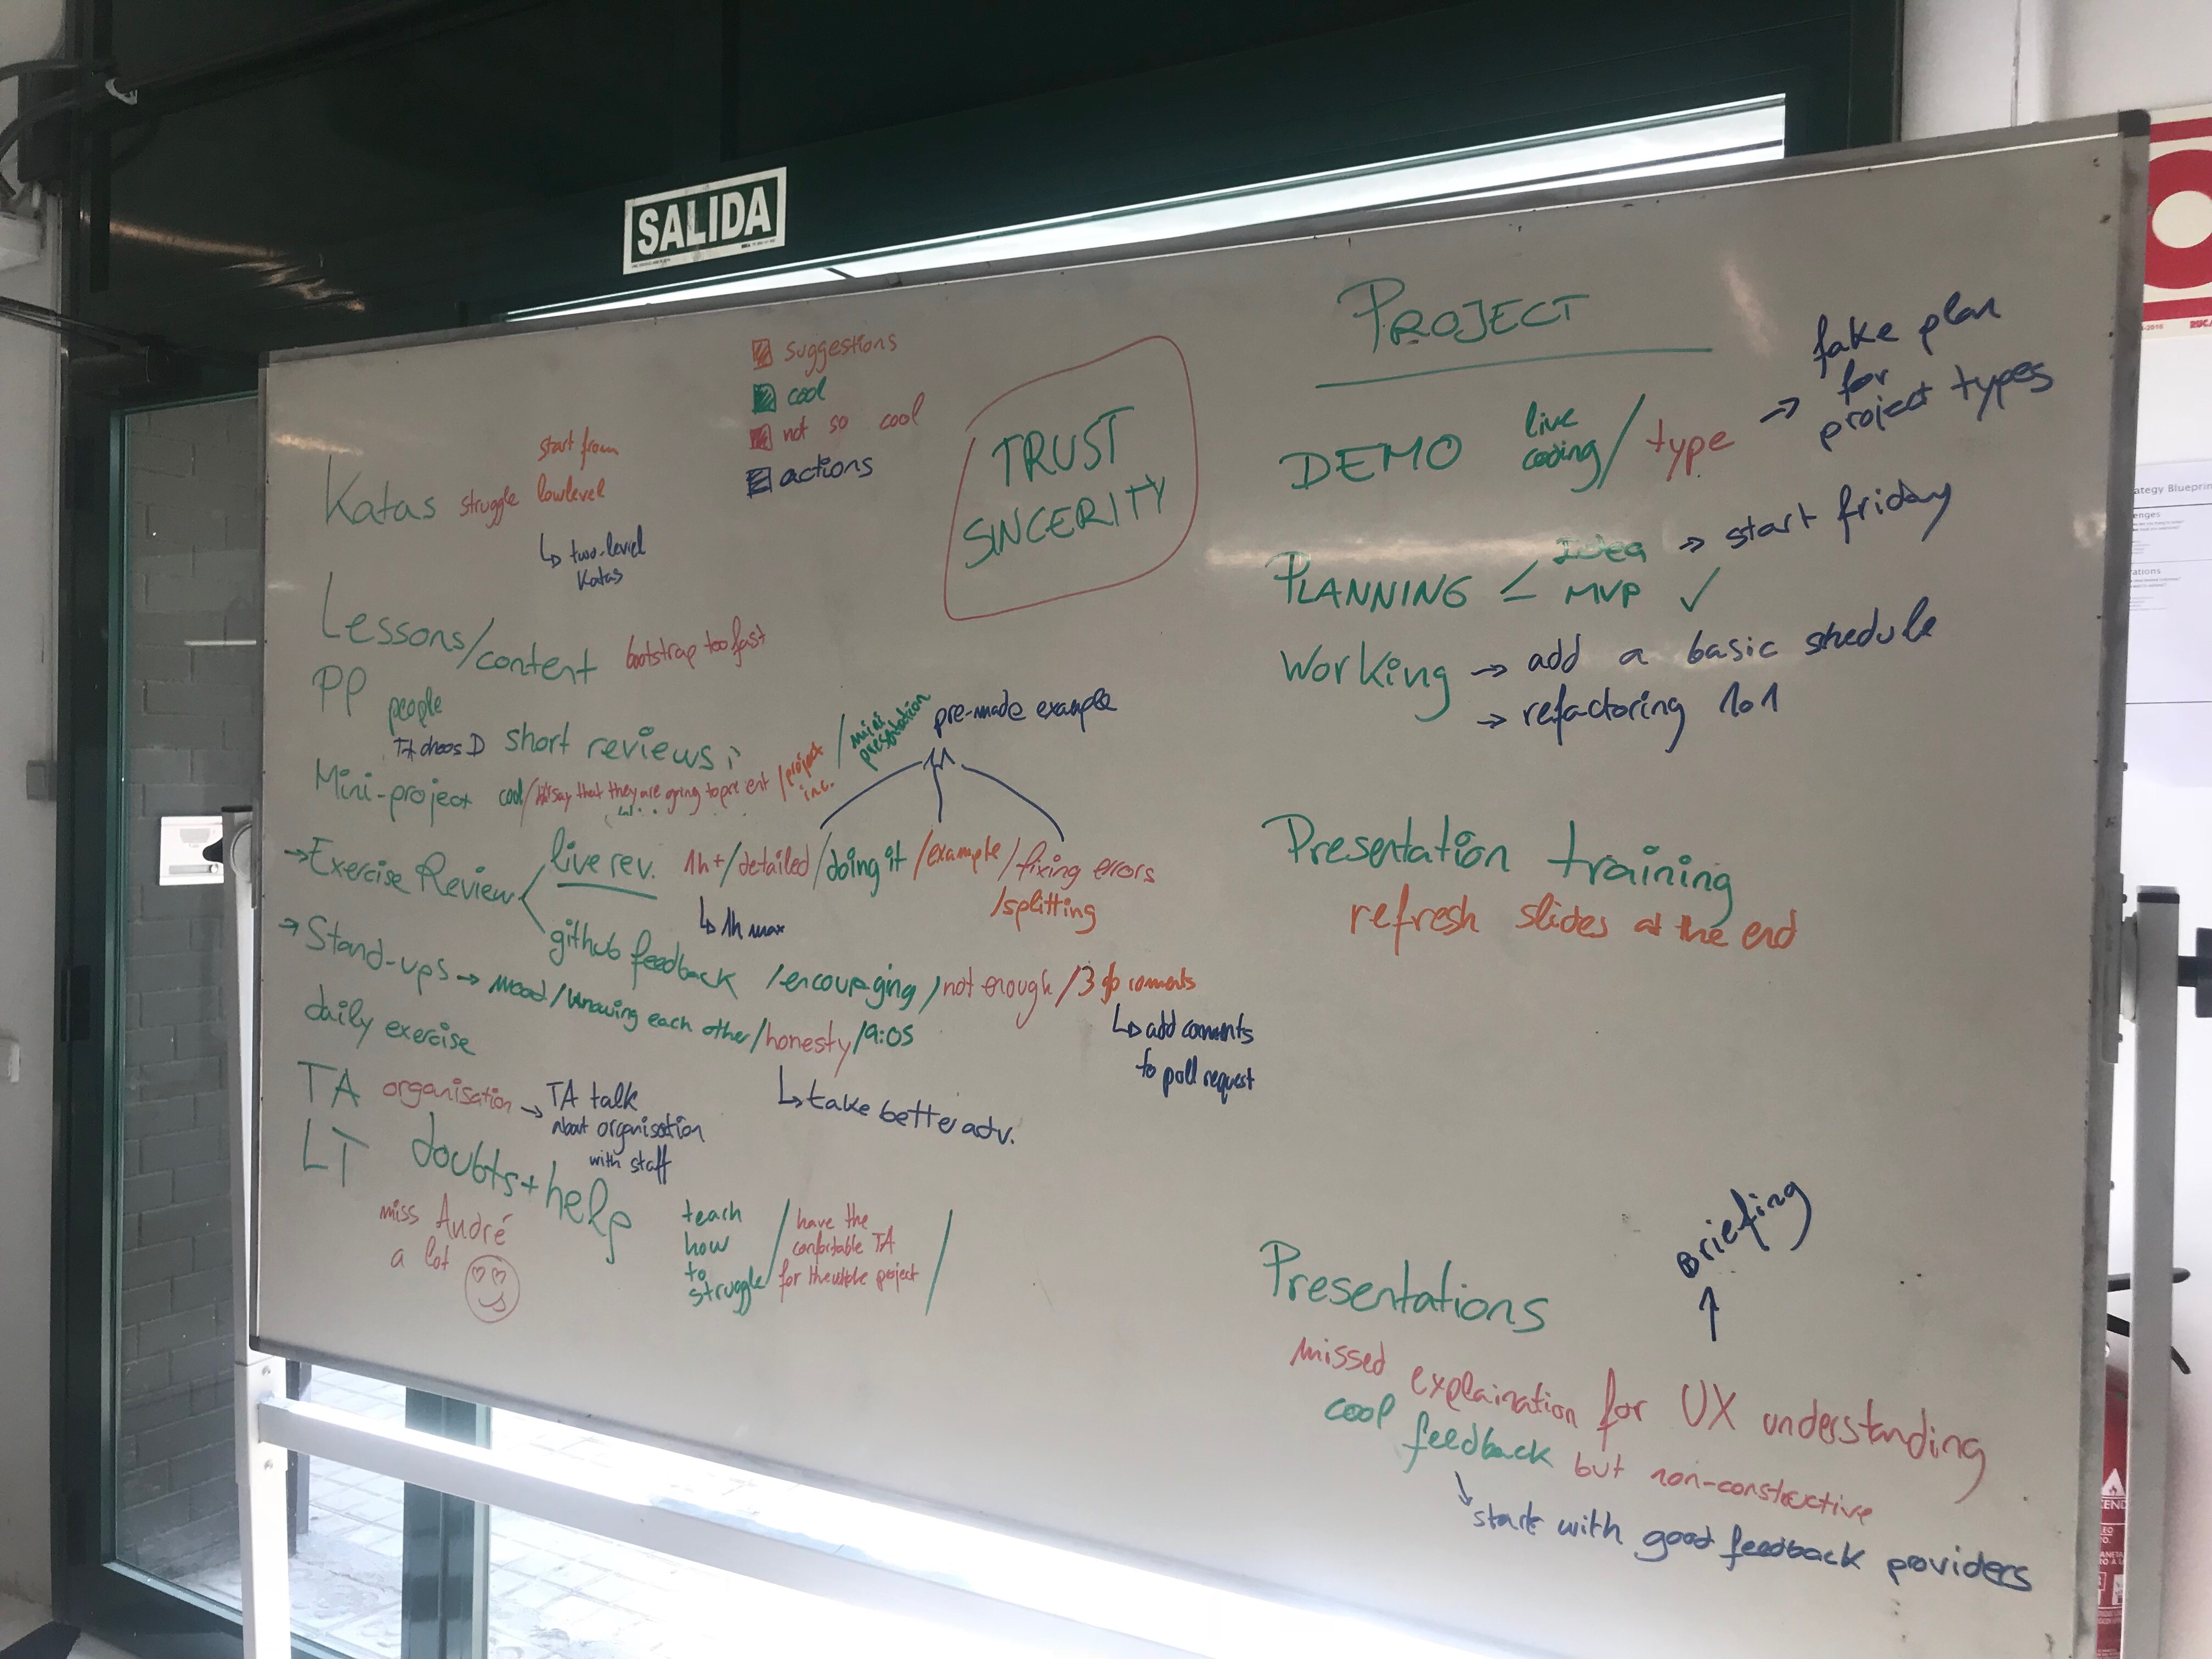 SALIDA
suggestions
cool
not so cool
actions
TRUST
SINCERITY
Katas struggle start from lowlevel
↳ two-level
Katas
Lessons/content bootstrap too fast
PP people
short reviews
Mini-project cool/ say that they are going to present /project inc. /mini presentation
pre-made example
→ Exercise Review live rev. 1h+/detailed/doing it/example/fixing errors
/splitting
↳ 1h max
github feedback /encouraging/not enough/3 coments
↳ add coments
to pull request
→ Stand-ups → mood/knowing each other/honesty/9:05
↳ take better adv.
daily exercise
TA organisation → TA talk
about organisation
with staff
LT doubts+help
miss André
a lot
teach
how
to
struggle
/have the
confortable TA
for the whole project/
PROJECT
DEMO live coding/type → fake plan
for
project types
PLANNING Idea → start friday
MVP ✓
Working → add a basic shedule
→ refactoring 101
Presentation training
refresh slides at the end
Presentations
Briefing
↑
missed explaination for UX understanding
cool feedback but non-constructive
start with good feedback providers